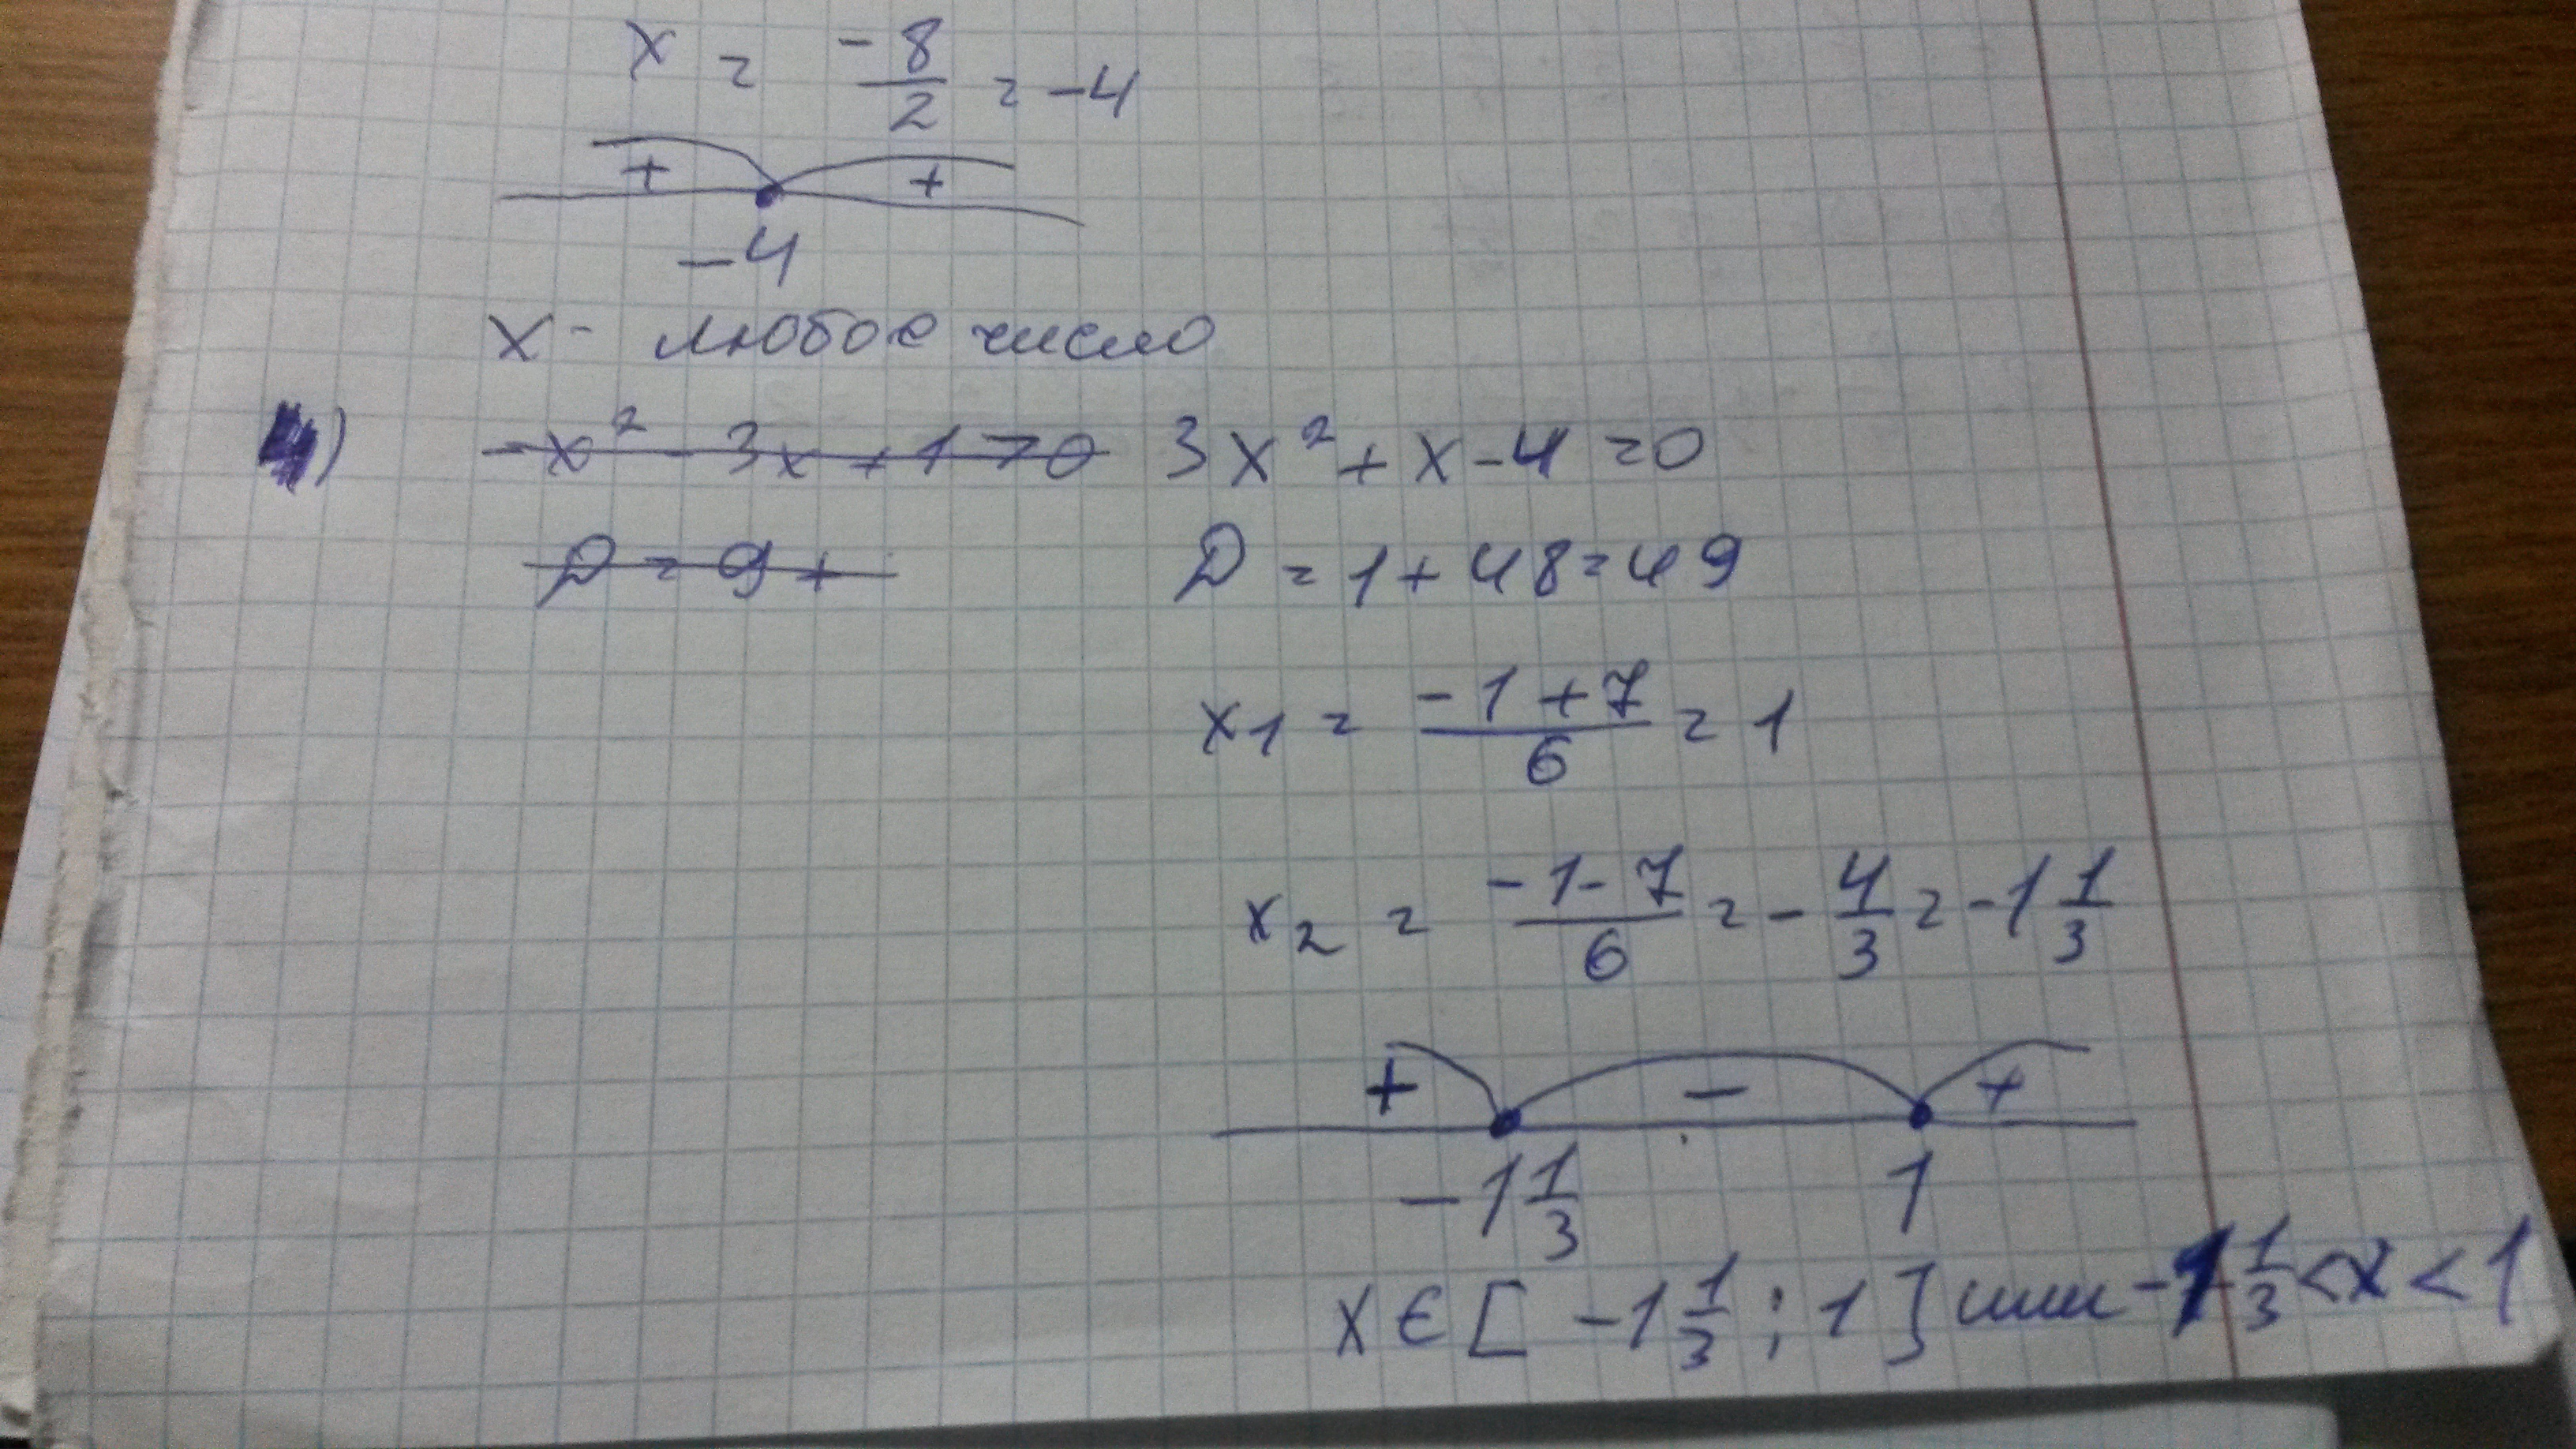 x = -8/2 = -4
+ +
-4
x - любое число
4) -x² - 3x + 1 > 0 3x² + x - 4 = 0
D = 9 + D = 1 + 48 = 49
x₁ = (-1 + 7)/6 = 1
x₂ = (-1 - 7)/6 = -4/3 = -1 1/3
+ - +
-1 1/3 1
x ∈ [-1 1/3 ; 1] или -1 1/3 < x < 1